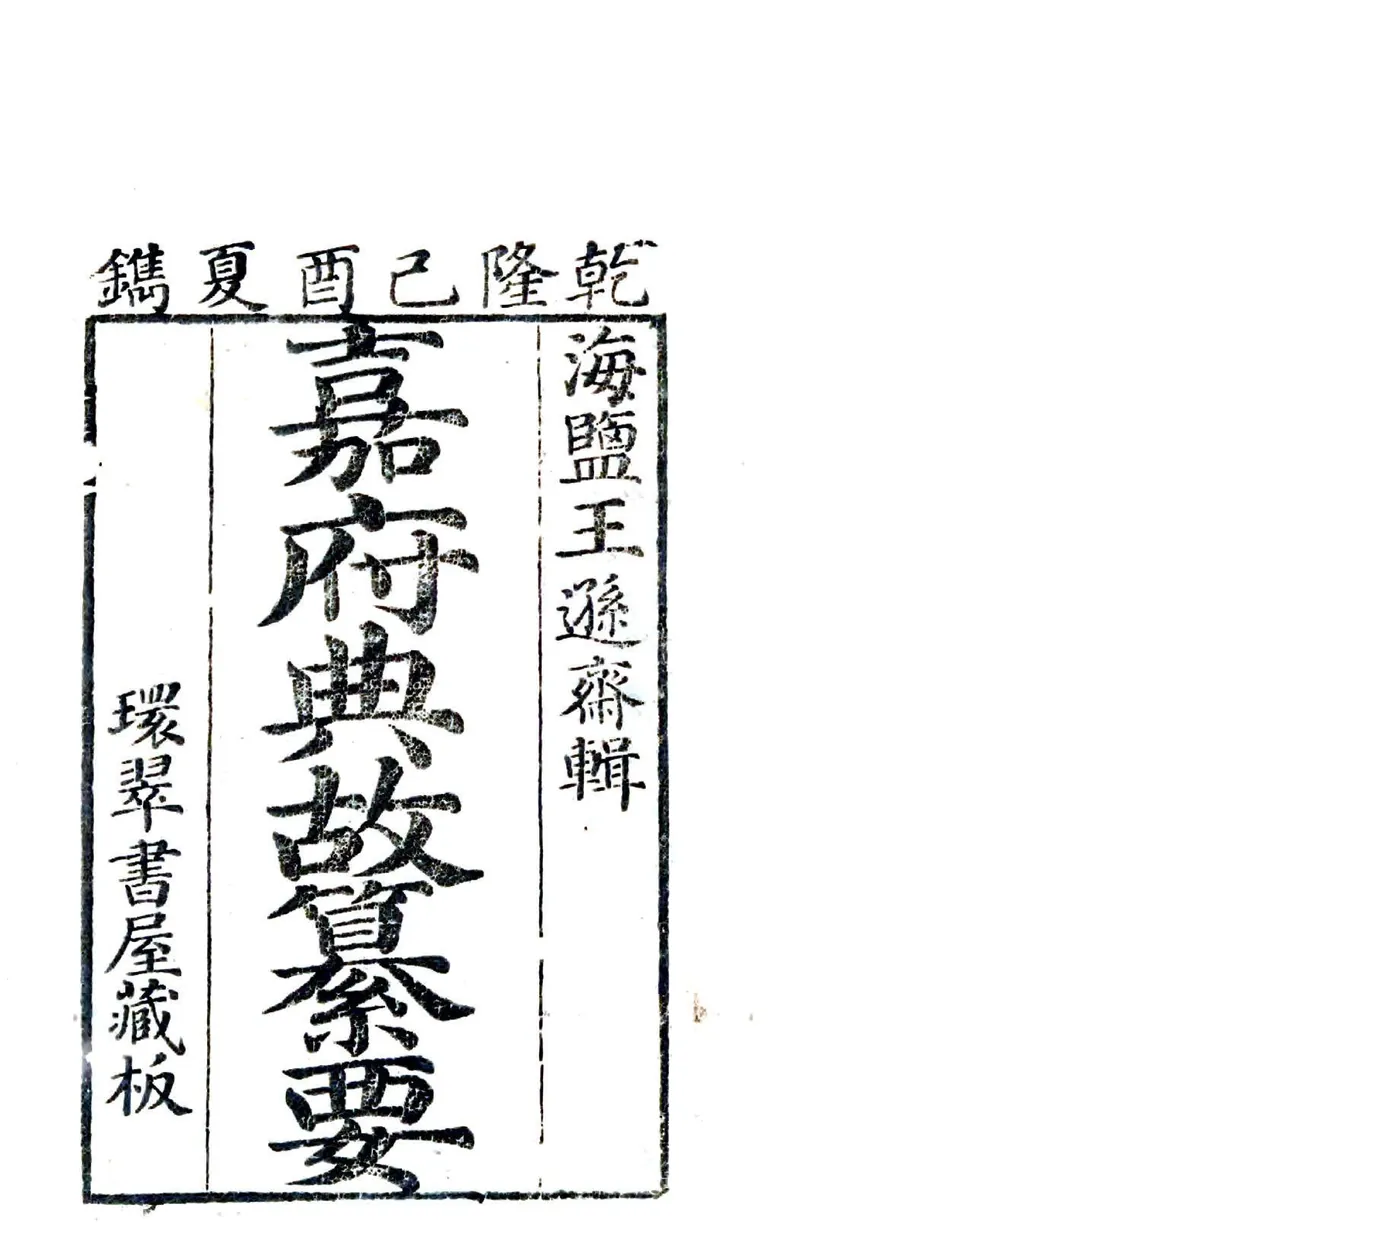 乾隆己酉夏鐫
海鹽王遜齋輯
嘉府典故纂要
環翠書屋藏板